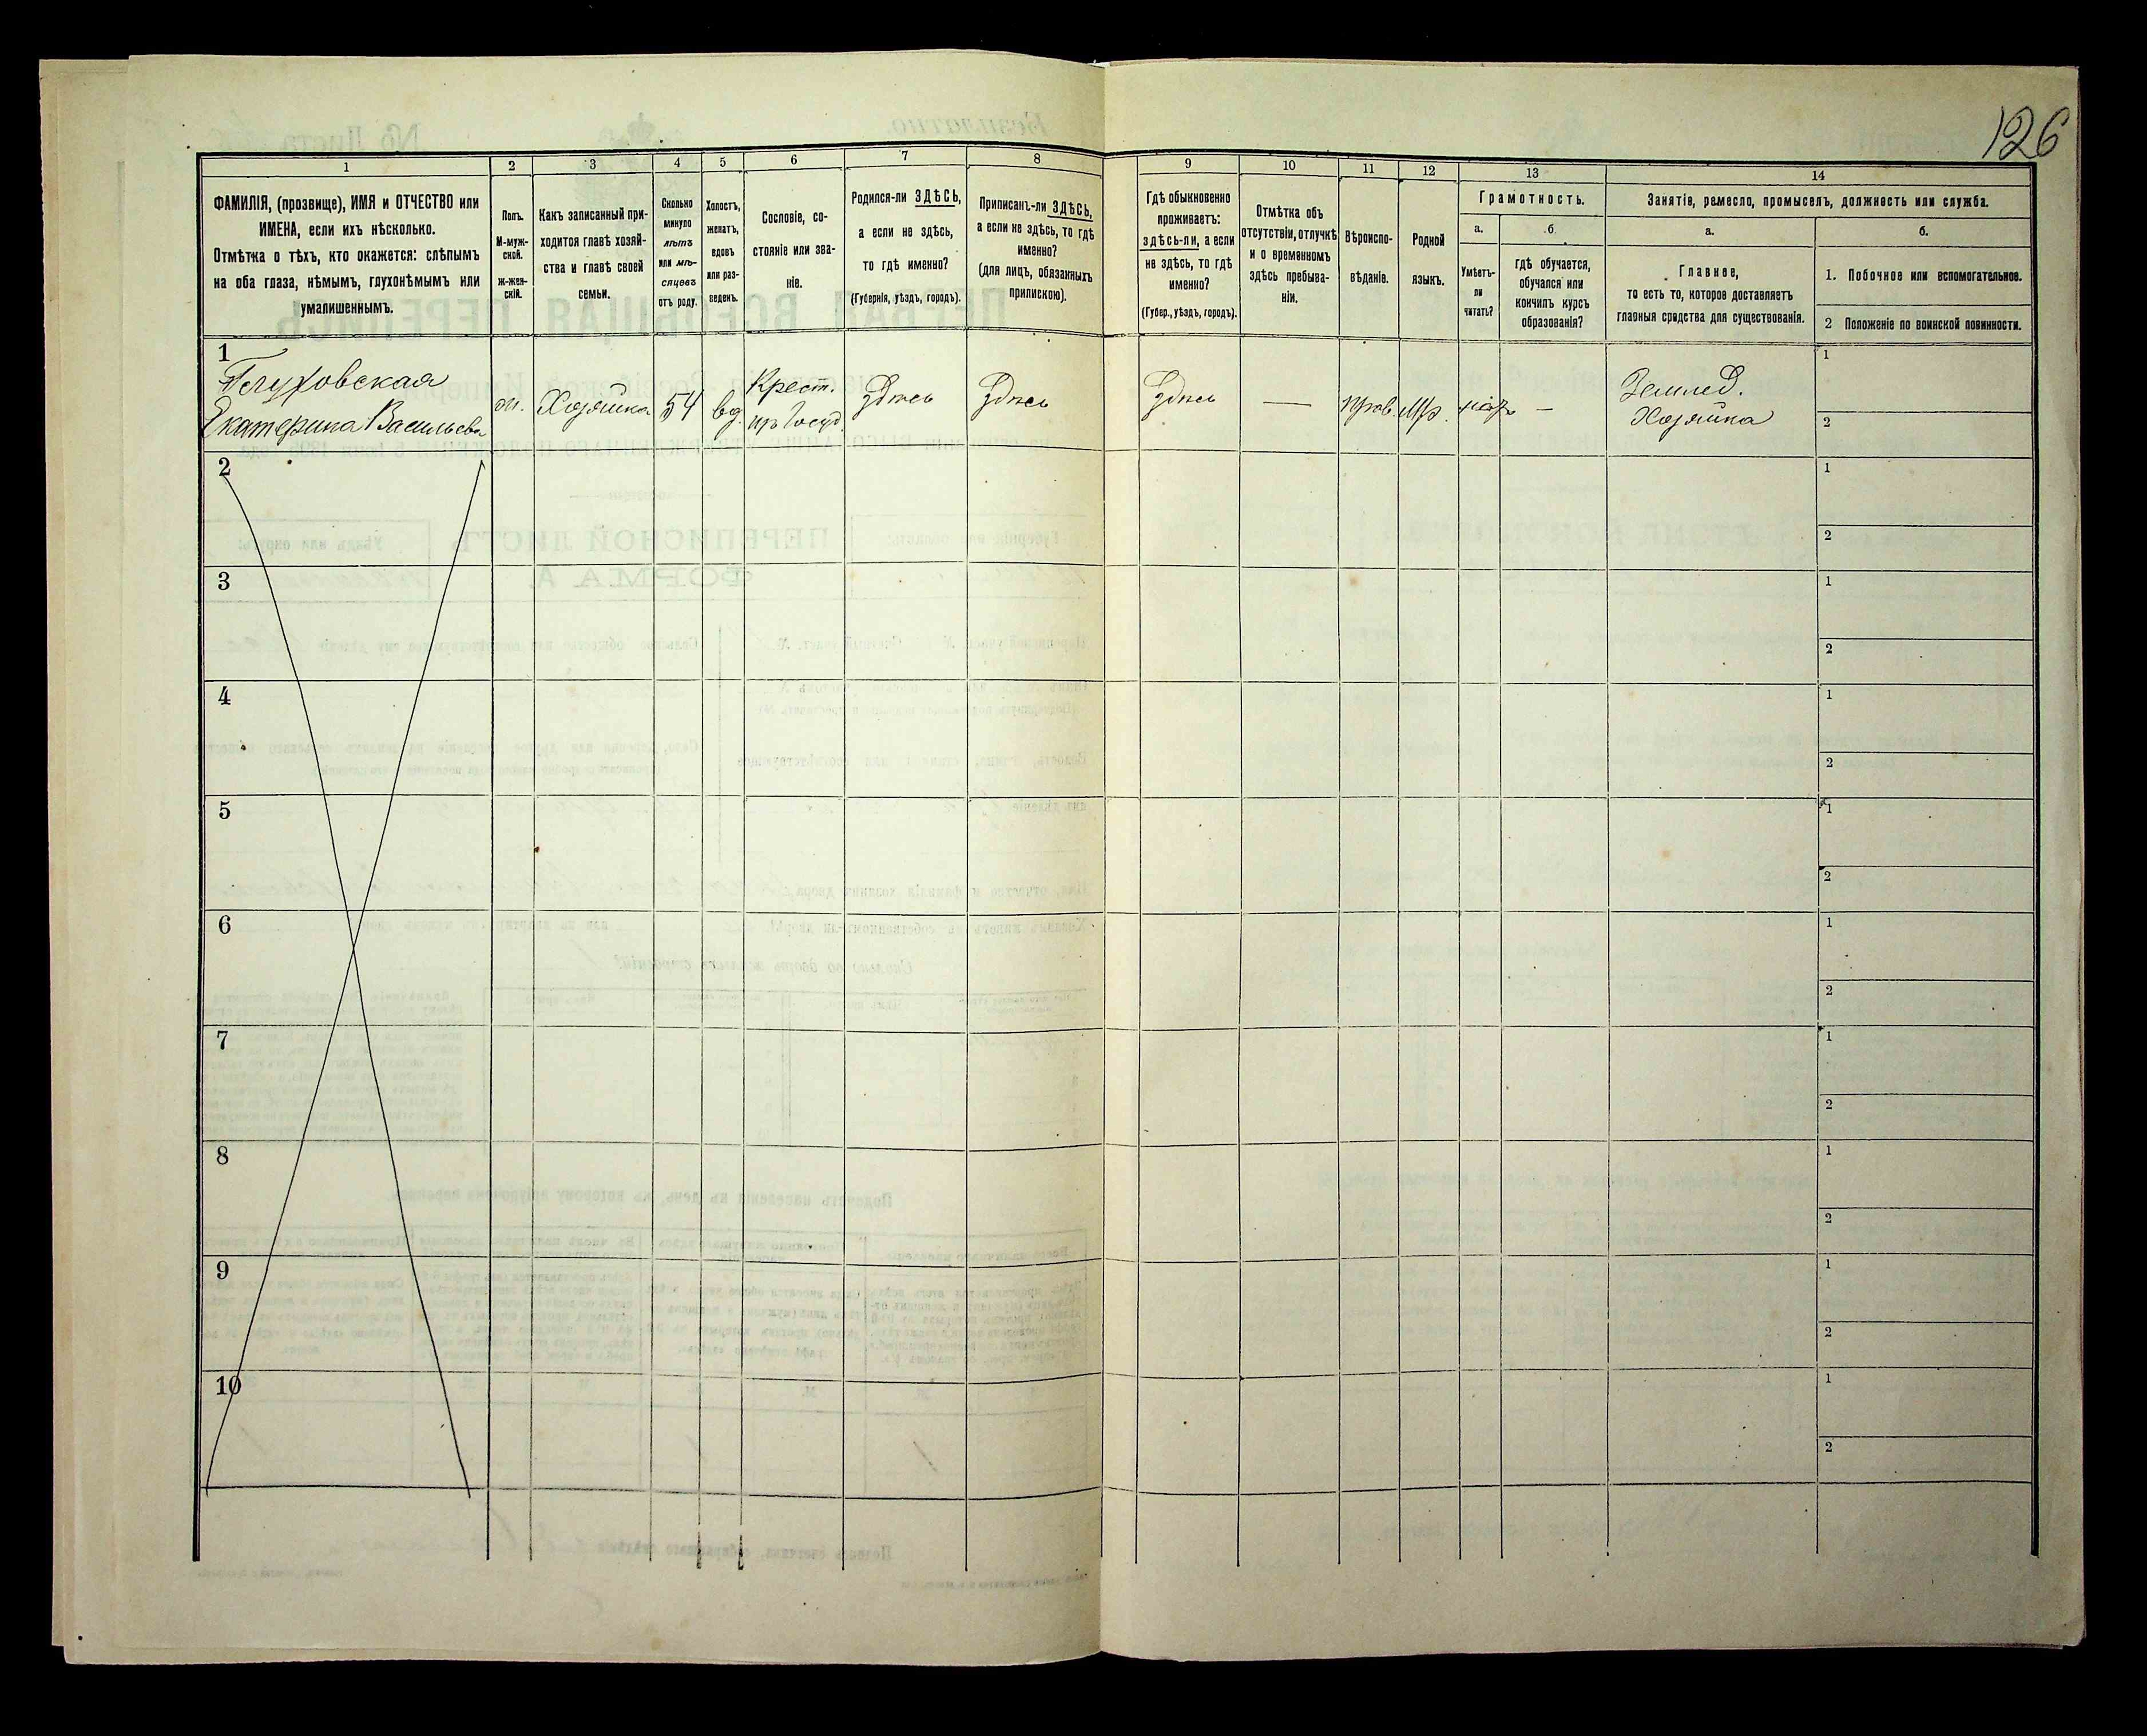 126
1 2 3 4 5 6 7 8 9 10 11 12 13 14
ФАМИЛІЯ, (прозвище), ИМЯ и ОТЧЕСТВО или
ИМЕНА, если ихъ нѣсколько.
Отмѣтка о тѣхъ, кто окажется: слѣпымъ
на оба глаза, нѣмымъ, глухонѣмымъ или
умалишеннымъ.
Полъ.
М-муж-
ской.
ж-жен-
скій.
Какъ записанный при-
ходится главѣ хозяй-
ства и главѣ своей
семьи.
Сколько
минуло
лѣтъ
или мѣ-
сяцевъ
отъ роду.
Холостъ,
женатъ,
вдовъ
или раз-
веденъ.
Сословіе, со-
стояніе или зва-
ніе.
Родился-ли ЗДѢСЬ,
а если не здѣсь,
то гдѣ именно?
(Губернія, уѣздъ, городъ).
Приписанъ-ли ЗДѢСЬ,
а если не здѣсь, то гдѣ
именно?
(для лицъ, обязанныхъ
припискою).
Гдѣ обыкновенно
проживаетъ:
здѣсь-ли, а если
не здѣсь, то гдѣ
именно?
(Губер., уѣздъ, городъ).
Отмѣтка объ
отсутствіи, отлучкѣ
и о временномъ
здѣсь пребыва-
ніи.
Вѣроиспо-
вѣданіе.
Родной
языкъ.
Грамотность.
а.
Умѣетъ-
ли
читать?
б.
гдѣ обучается,
обучался или
кончилъ курсъ
образованія?
Занятіе, ремесло, промыселъ, должность или служба.
а.
Главное,
то есть то, которое доставляетъ
главныя средства для существованія.
б.
1. Побочное или вспомогательное.
2 Положеніе по воинской повинности.
1
Глуховская
Екатерина Васильева
ж.
Хозяйка
54
вд.
Крест.
Здѣсь
Здѣсь
Здѣсь
—
прав.
Мр.
—
Землед.
Хозяйка
1
2
2
1
2
3
1
2
4
1
2
5
1
2
6
1
2
7
1
2
8
1
2
9
1
2
10
1
2